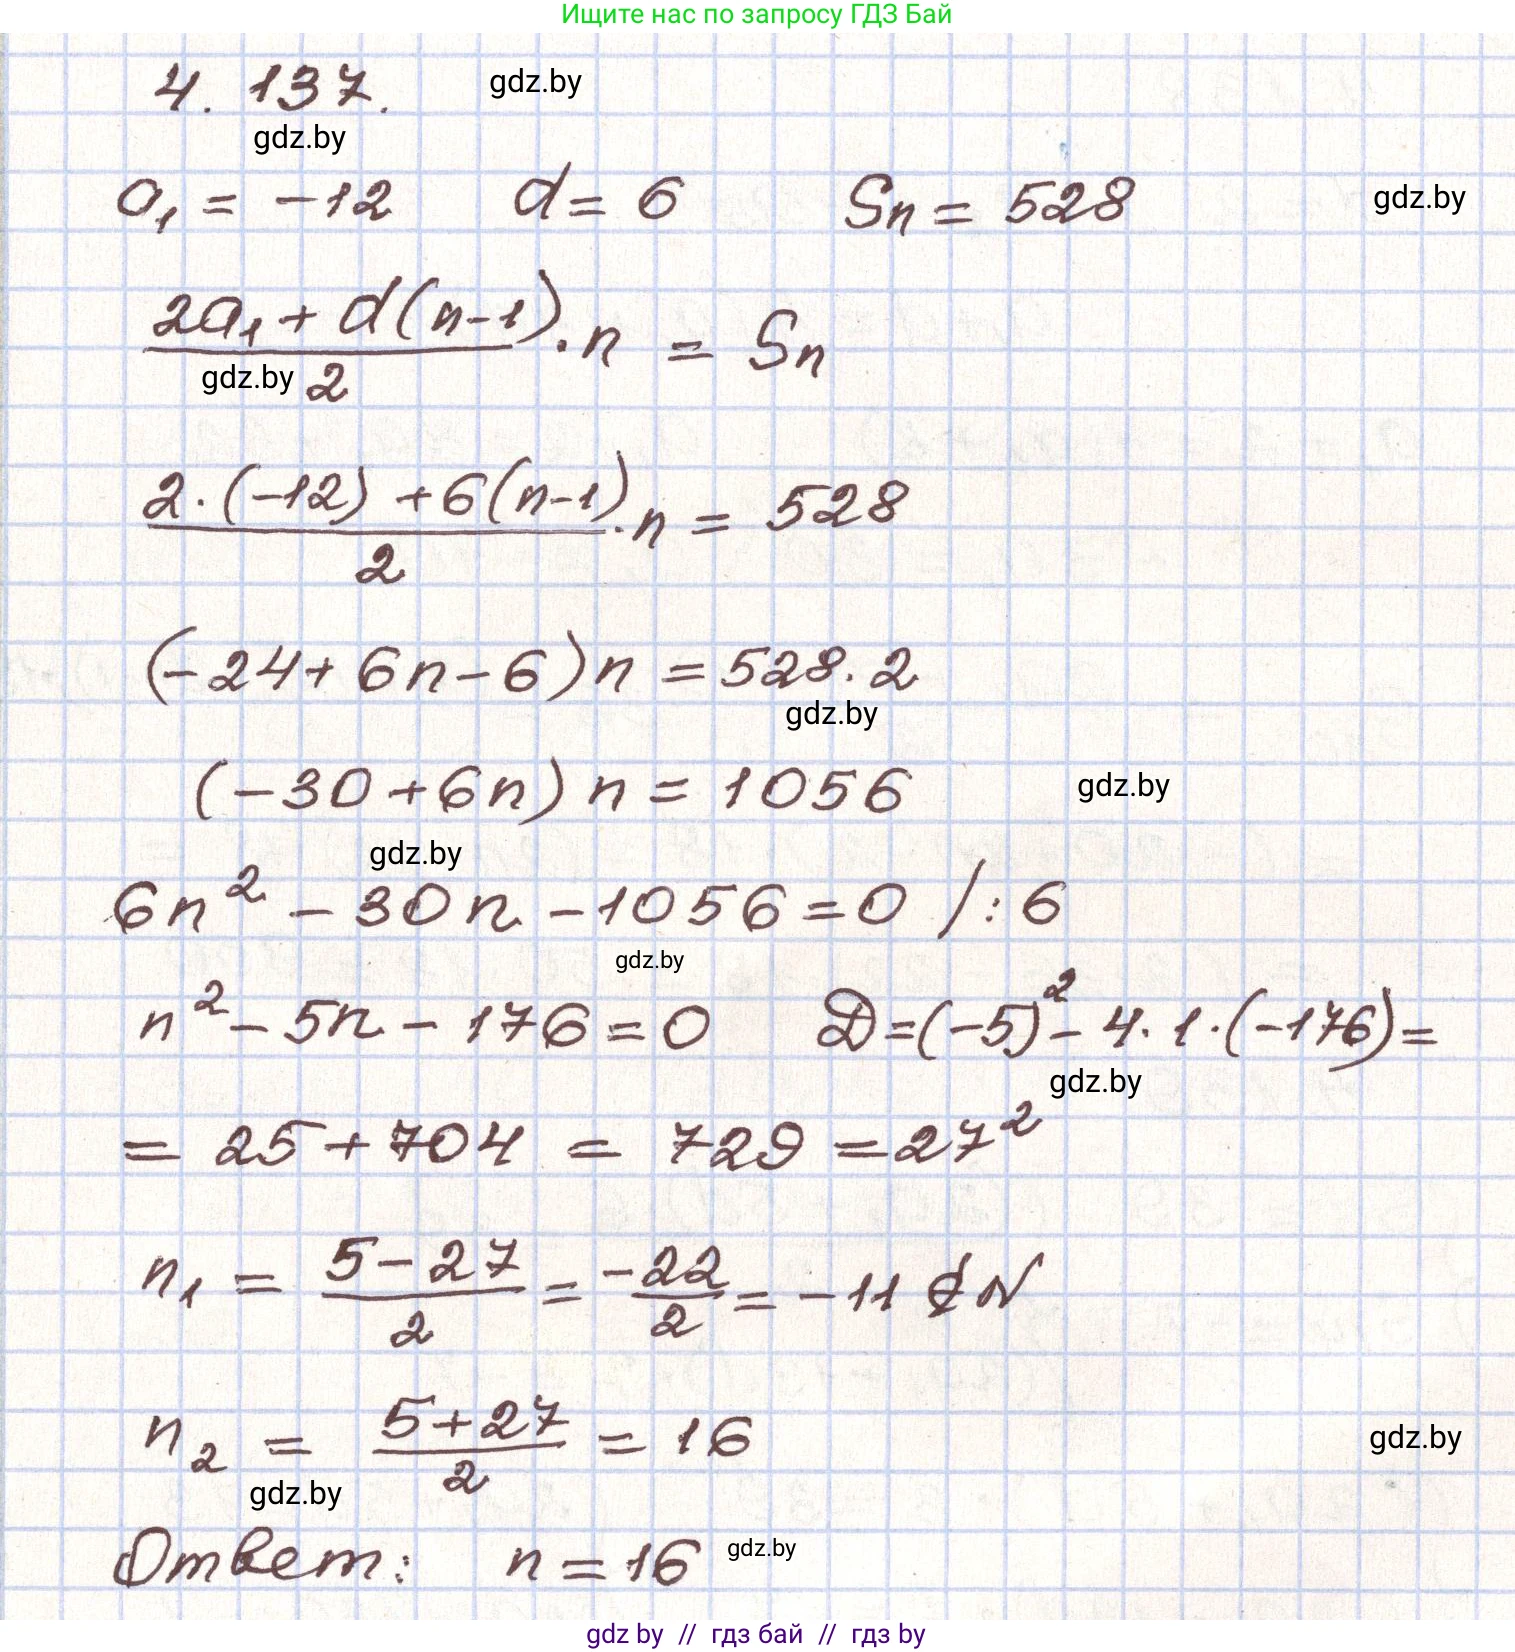 Ищите нас по запросу ГДЗ Бай
4.137. gdz.by
gdz.by
a₁ = -12 d = 6 Sn = 528 gdz.by
(2a₁ + d(n-1))/2 · n = Sn
gdz.by
(2·(-12) + 6(n-1))/2 · n = 528
(-24 + 6n - 6)n = 528·2
gdz.by
(-30 + 6n)n = 1056 gdz.by
gdz.by
6n² - 30n - 1056 = 0 /:6
gdz.by
n² - 5n - 176 = 0 D = (-5)² - 4·1·(-176) =
gdz.by
= 25 + 704 = 729 = 27²
n₁ = (5-27)/2 = -22/2 = -11 ∉ N
n₂ = (5+27)/2 = 16 gdz.by
gdz.by
Ответ: n = 16 gdz.by
gdz by // гдз бай // гдз by